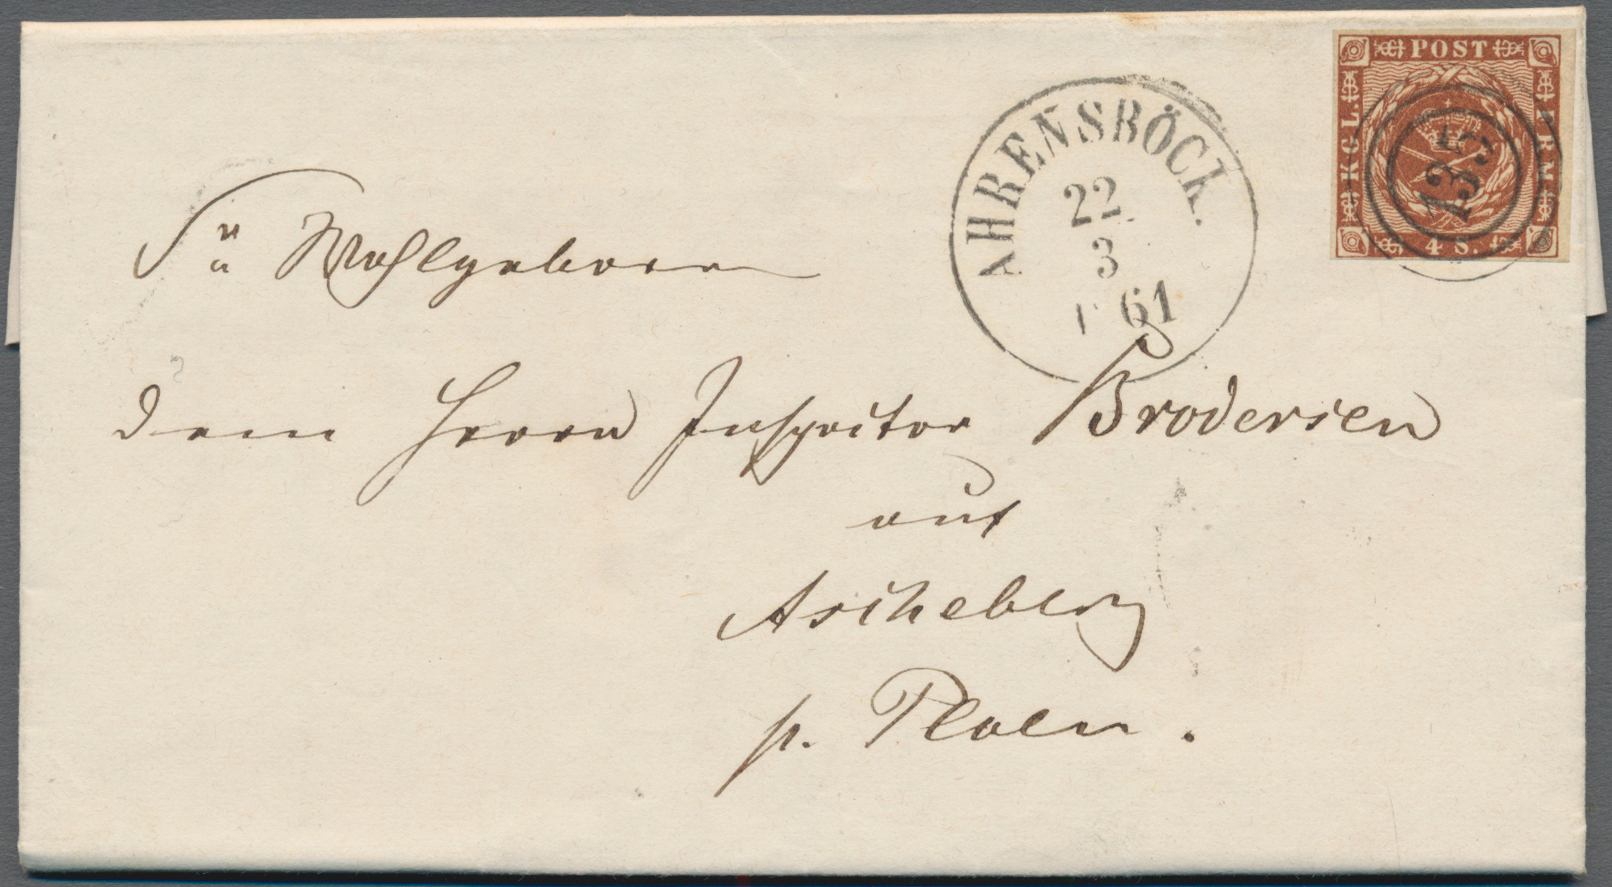 KGL. POST FRM.
4 S.
135
AHRENSBÖCK.
22
3
61
Sr Wohlgeboren
dem Herrn Inspector Brodersen
auf
Ascheberg
p. Ploen.